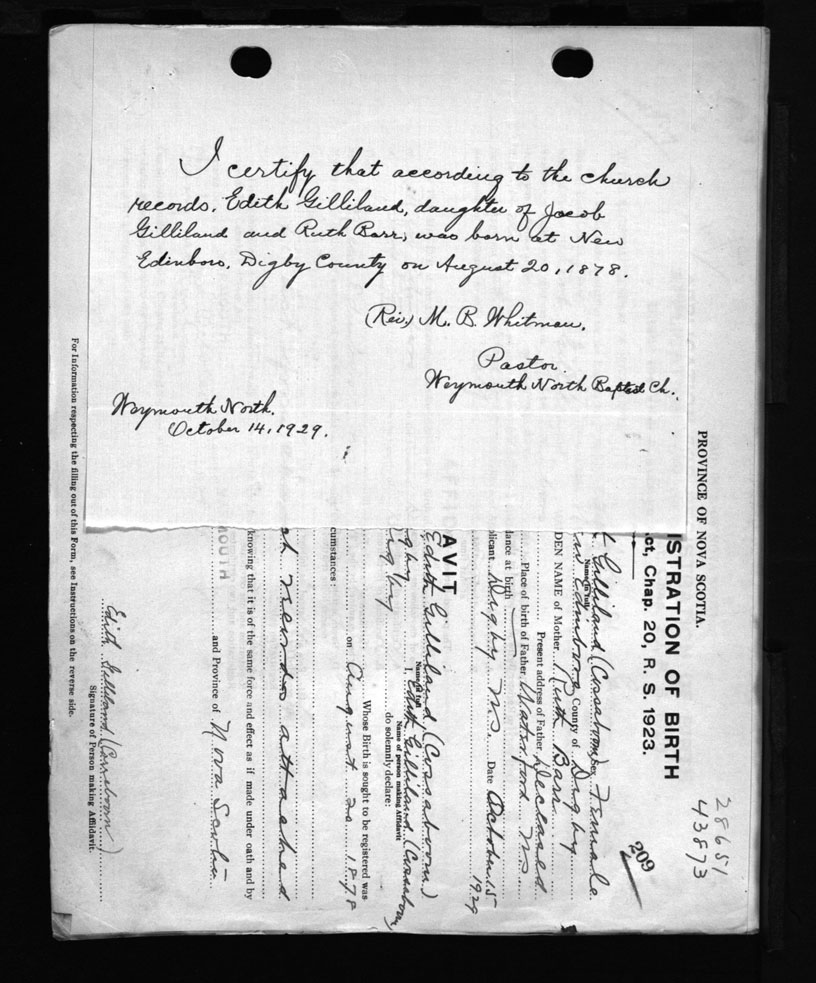 I certify that according to the church
records, Edith Gilliland, daughter of Jacob
Gilliland and Ruth Barr, was born at New
Edinboro, Digby County on August 20, 1878.
(Rev.) M. B. Whitman.
Pastor.
Weymouth North Baptist Ch.
Weymouth North.
October 14, 1929.
28651
43873
209
PROVINCE OF NOVA SCOTIA.
ISTRATION OF BIRTH
ct, Chap. 20, R. S. 1923.
Gilliland (Cossaboom) Sex Female
Name in full
Edinboro County of Digby
DEN NAME of Mother Ruth Barr
Present address of Father Deceased
Place of birth of Father Waterford N.S.
dance at birth
plicant Digby N.S. Date October 15 1929
AVIT
Edith Gilliland (Cossaboom)
Name in full
gby, Edith Gilliland (Cossaboom)
Name of person making Affidavit
igby do solemnly declare:
Whose Birth is sought to be registered was
on August 20 1878
cumstances:
ch records attached
knowing that it is of the same force and effect as if made under oath and by
MOUTH
and Province of Nova Scotia
Edith Gilliland (Cossaboom)
Signature of Person making Affidavit.
For Information respecting the filling out of this Form, see Instructions on the reverse side.